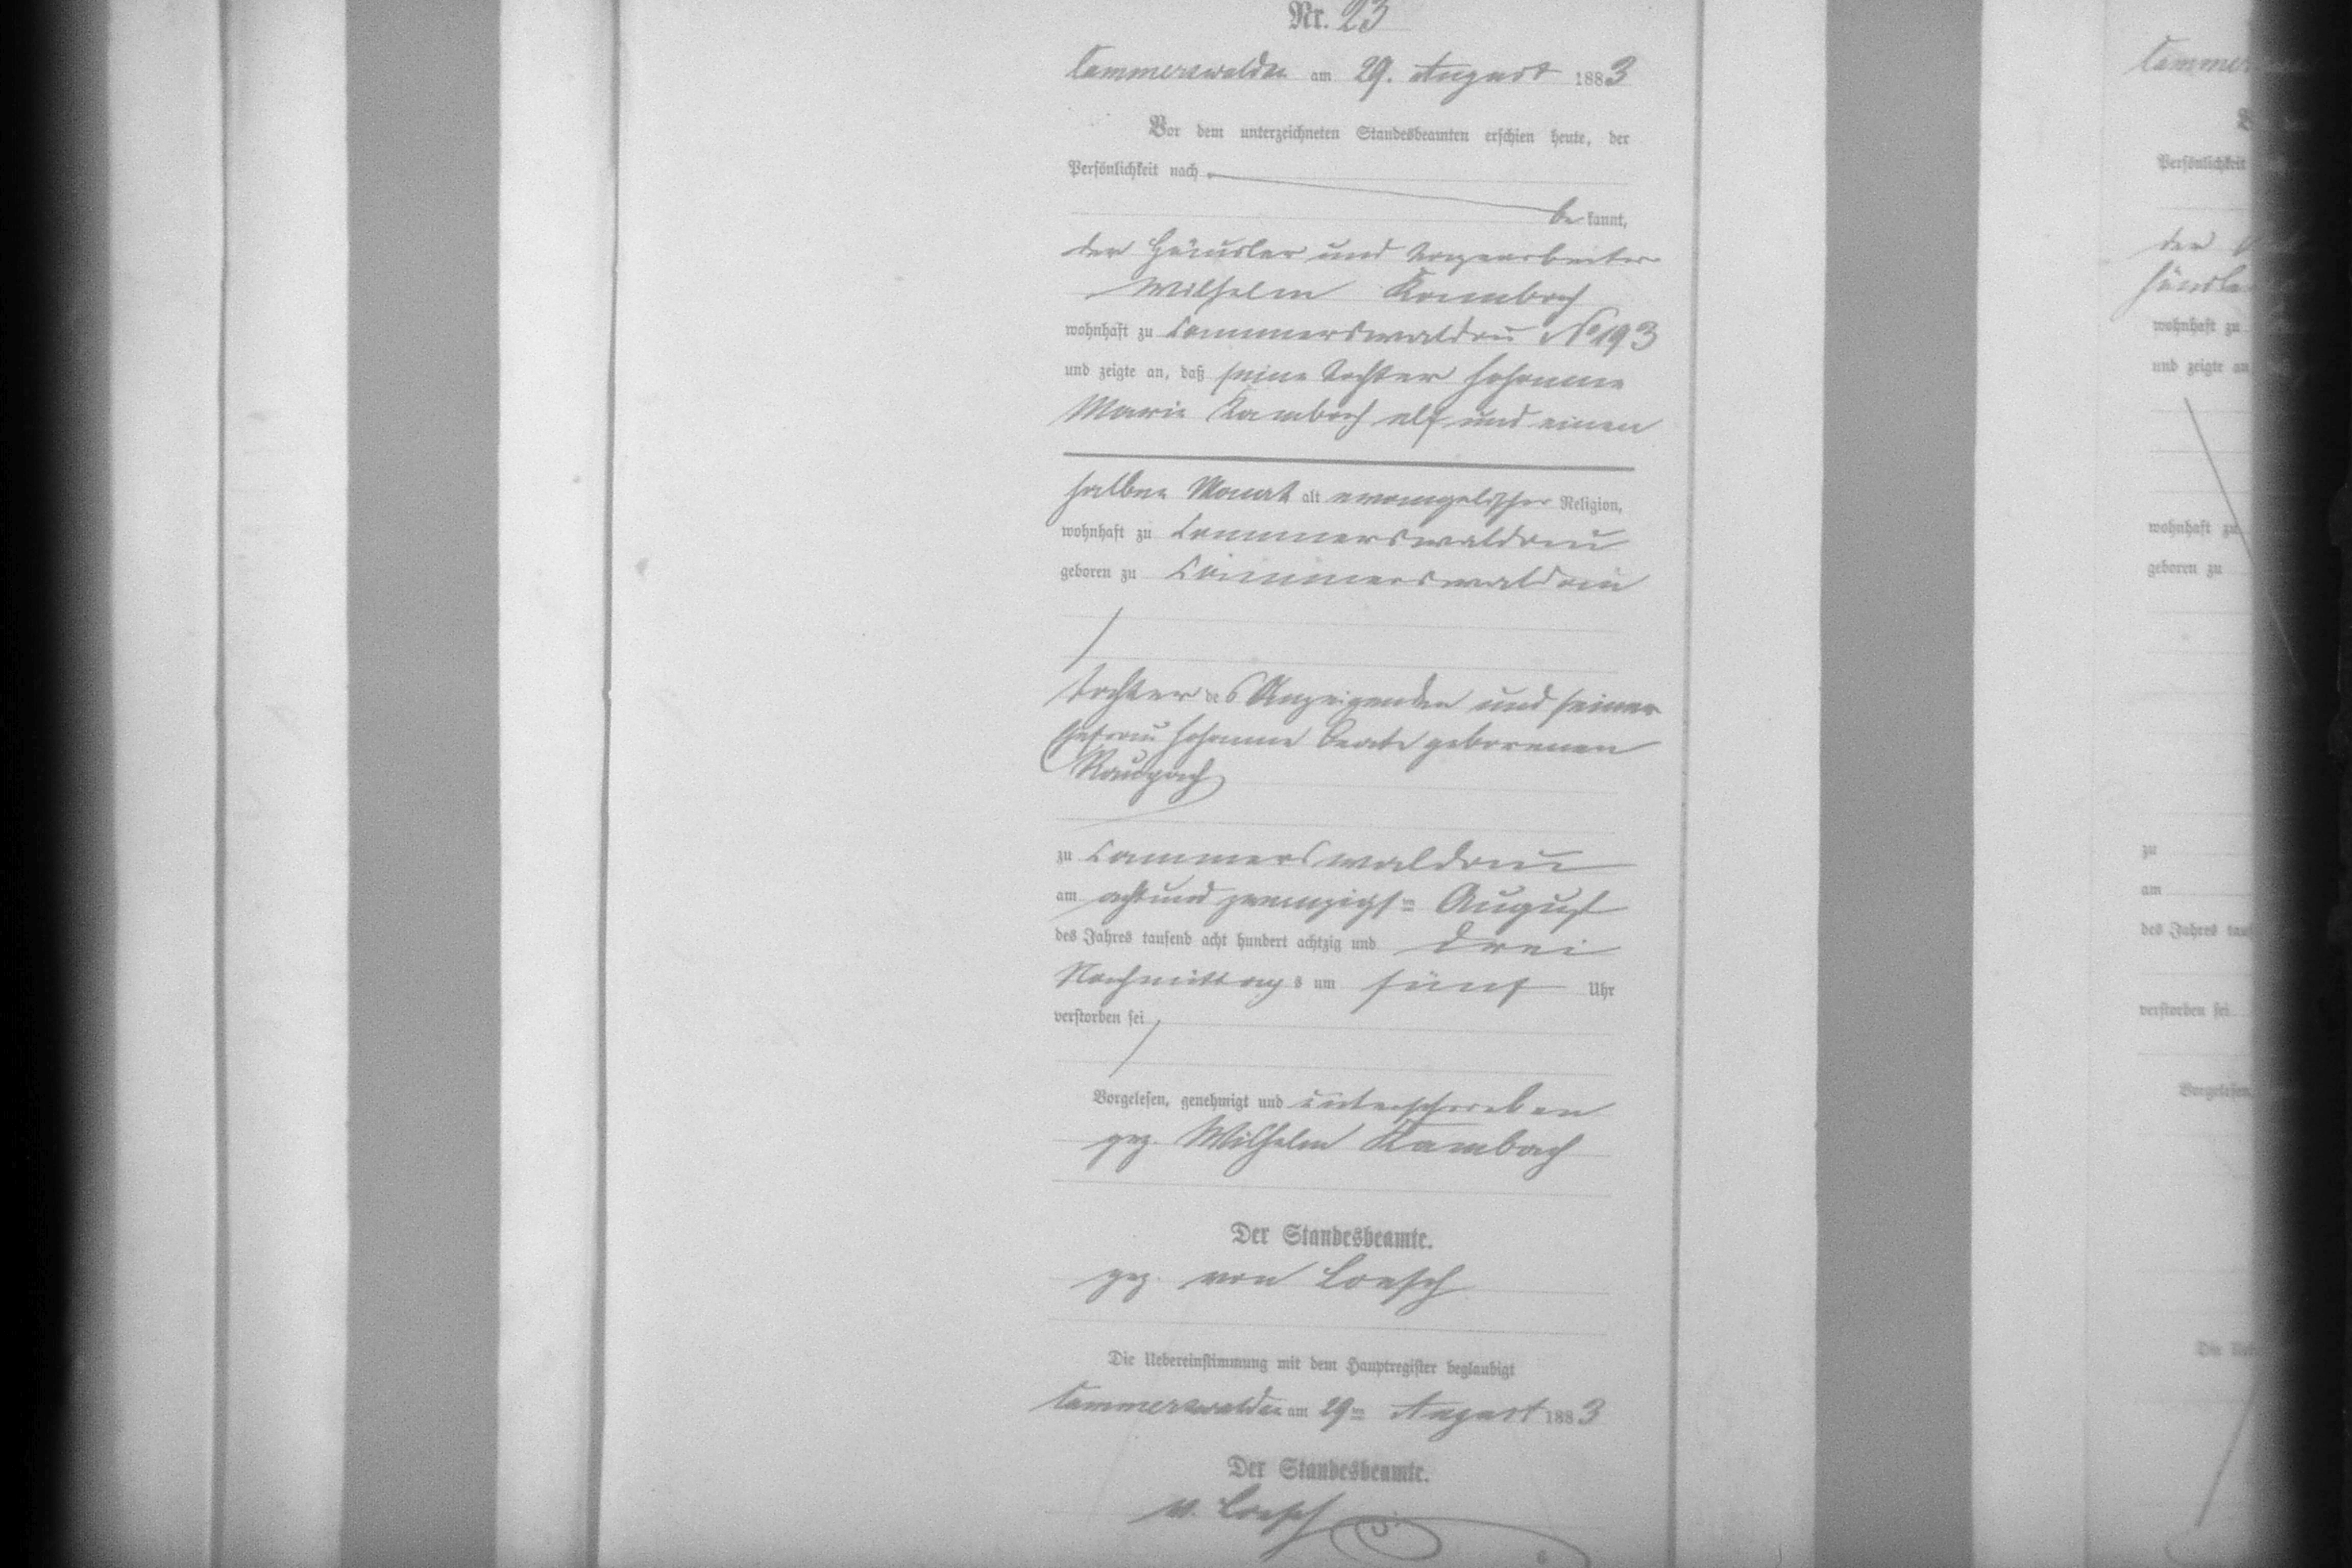 Nr. 23
Cammerswaldau am 29. August 1883
Vor dem unterzeichneten Standesbeamten erschien heute, der
Persönlichkeit nach
be kannt,
der Häusler und Tagearbeiter
Wilhelm Kambach
wohnhaft zu Cammerswaldau No 193
und zeigte an, daß seine Tochter Johanne
Marie Kambach elf und einen
halben Monat alt evangelischer Religion,
wohnhaft zu Cammerswaldau
geboren zu Cammerswaldau
Tochter des Anzeigenden und seiner
Ehefrau Johanne Beate geborenen
Raupach
zu Cammerswaldau
am achtundzwanzigsten August
des Jahres tausend acht hundert achtzig und drei
Nachmittags um fünf Uhr
verstorben sei
Vorgelesen, genehmigt und unterschrieben
gez. Wilhelm Kambach
Der Standesbeamte.
gez. von Loesch
Die Uebereinstimmung mit dem Hauptregister beglaubigt
Cammerswaldau am 29ten August 1883
Der Standesbeamte.
v. Loesch
Persönlichkeit
der
wohnhaft zu
und zeigte an
wohnhaft zu
geboren zu
zu
am
des Jahres
verstorben sei
Vorgelesen,